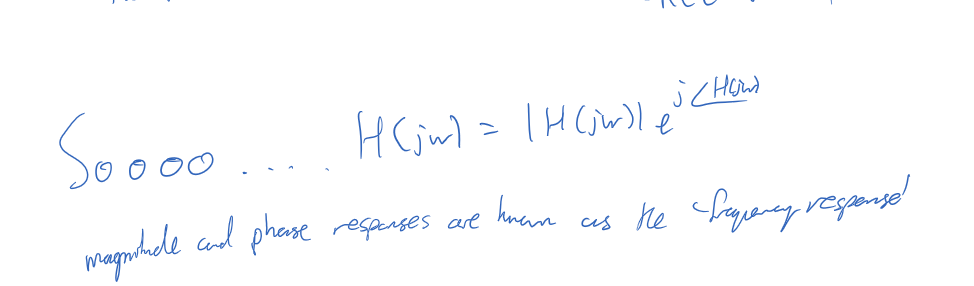 Soooo ..... H(jw) = |H(jw)| e^{j∠H(jw)}
magnitude and phase responses are known as the 'frequency response'